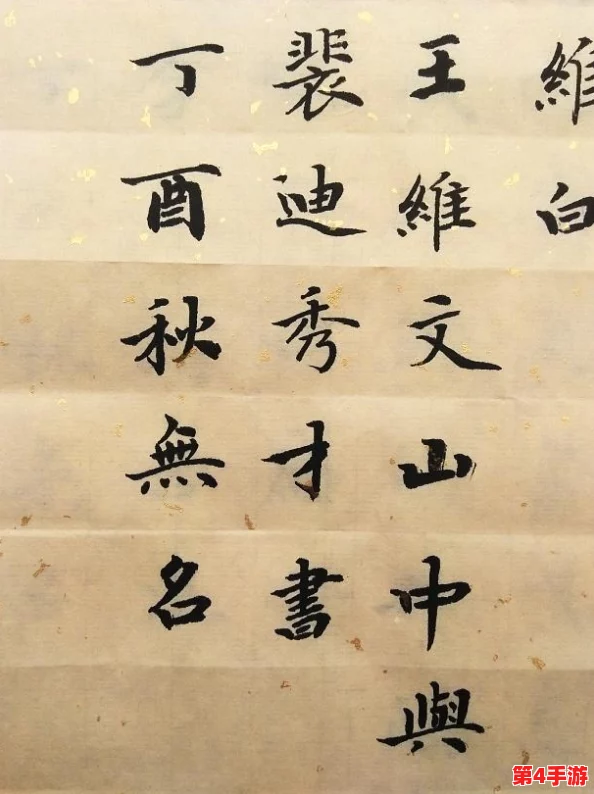 維白
王維文山中與
裴迪秀才書
丁酉秋無名
第4手游